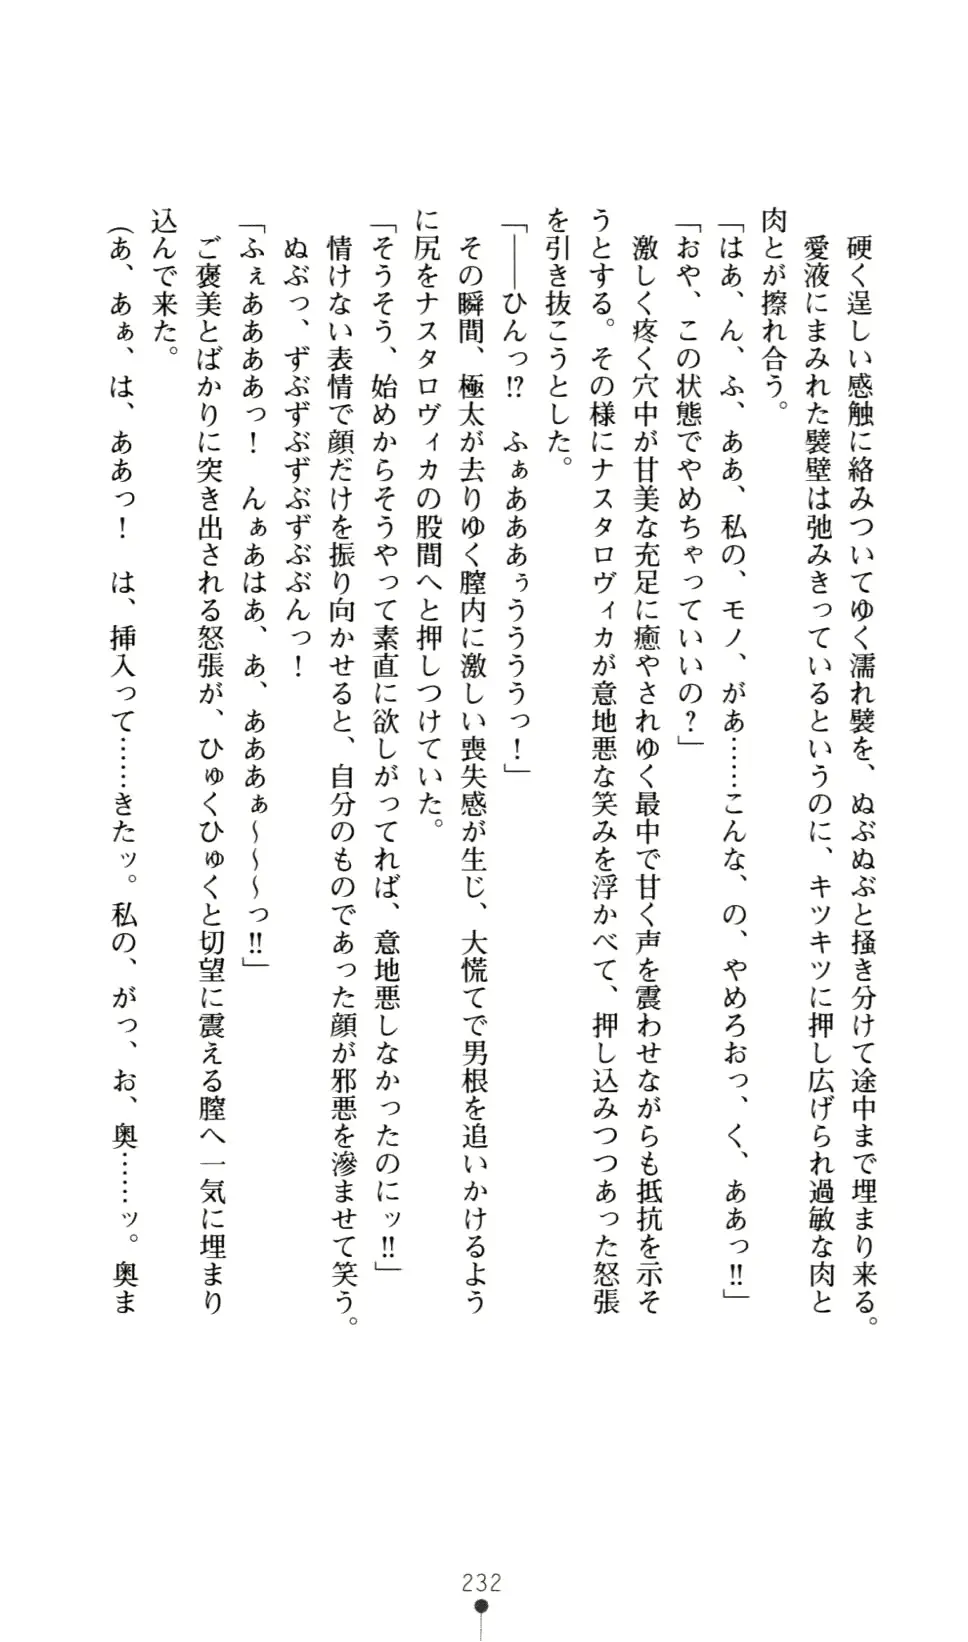 硬く逞しい感触に絡みついてゆく濡れ襞を、ぬぶぬぶと掻き分けて途中まで埋まり来る。
愛液にまみれた襞壁は弛みきっているというのに、キツキツに押し広げられ過敏な肉と
肉とが擦れ合う。
「はあ、ん、ふ、ああ、私の、モノ、があ……こんな、の、やめろおっ、く、ああっ!!」
「おや、この状態でやめちゃっていいの?」
激しく疼く穴中が甘美な充足に癒やされゆく最中で甘く声を震わせながらも抵抗を示そ
うとする。その様にナスタロヴィカが意地悪な笑みを浮かべて、押し込みつつあった怒張
を引き抜こうとした。
「――ひんっ!? ふぁあああぅうううっ!」
その瞬間、極太が去りゆく膣内に激しい喪失感が生じ、大慌てで男根を追いかけるよう
に尻をナスタロヴィカの股間へと押しつけていた。
「そうそう、始めからそうやって素直に欲しがってれば、意地悪しなかったのにッ!!」
情けない表情で顔だけを振り向かせると、自分のものであった顔が邪悪を滲ませて笑う。
ぬぶっ、ずぶずぶずぶぶんっ!
「ふぇああああっ! んぁあはあ、あ、あああぁ～～～っ!!」
ご褒美とばかりに突き出される怒張が、ひゅくひゅくと切望に震える膣へ一気に埋まり
込んで来た。
(あ、あぁ、は、ああっ! は、挿入って……きたッ。私の、がっ、お、奥……ッ。奥ま
232